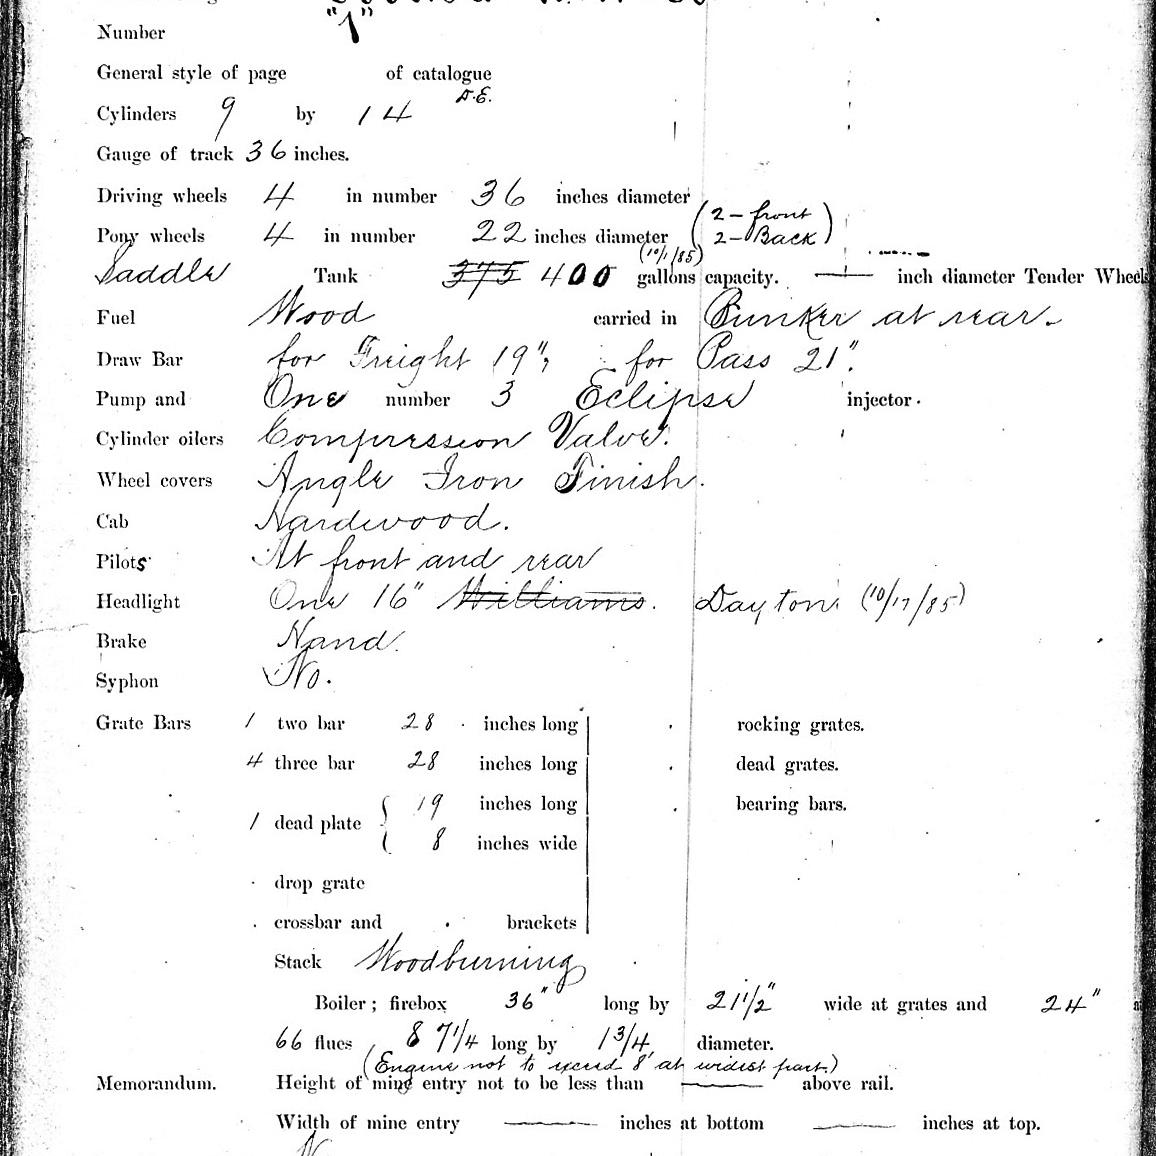 Number "1"
General style of page of catalogue
D.E.
Cylinders 9 by 14
Gauge of track 36 inches.
Driving wheels 4 in number 36 inches diameter
(2 - front
Pony wheels 4 in number 22 inches diameter 2 - Back)
(10/1/85)
Saddle Tank 375 400 gallons capacity. —— inch diameter Tender Wheels
Fuel Wood carried in Bunker at rear.
Draw Bar for Freight 19", for Pass 21".
Pump and One number 3 Eclipse injector.
Cylinder oilers Compression Valve.
Wheel covers Angle Iron Finish.
Cab Hardwood.
Pilots At front and rear
Headlight One 16" Williams. Dayton (10/17/85)
Brake Hand.
Syphon No.
Grate Bars 1 two bar 28 inches long rocking grates.
4 three bar 28 inches long dead grates.
19 inches long bearing bars.
1 dead plate {
8 inches wide
drop grate
crossbar and brackets
Stack Woodburning
Boiler; firebox 36" long by 21 1/2" wide at grates and 24"
66 flues 8 7 1/4 long by 1 3/4 diameter.
(Engine not to exceed 8' at widest part.)
Memorandum. Height of mine entry not to be less than —— above rail.
Width of mine entry —— inches at bottom —— inches at top.